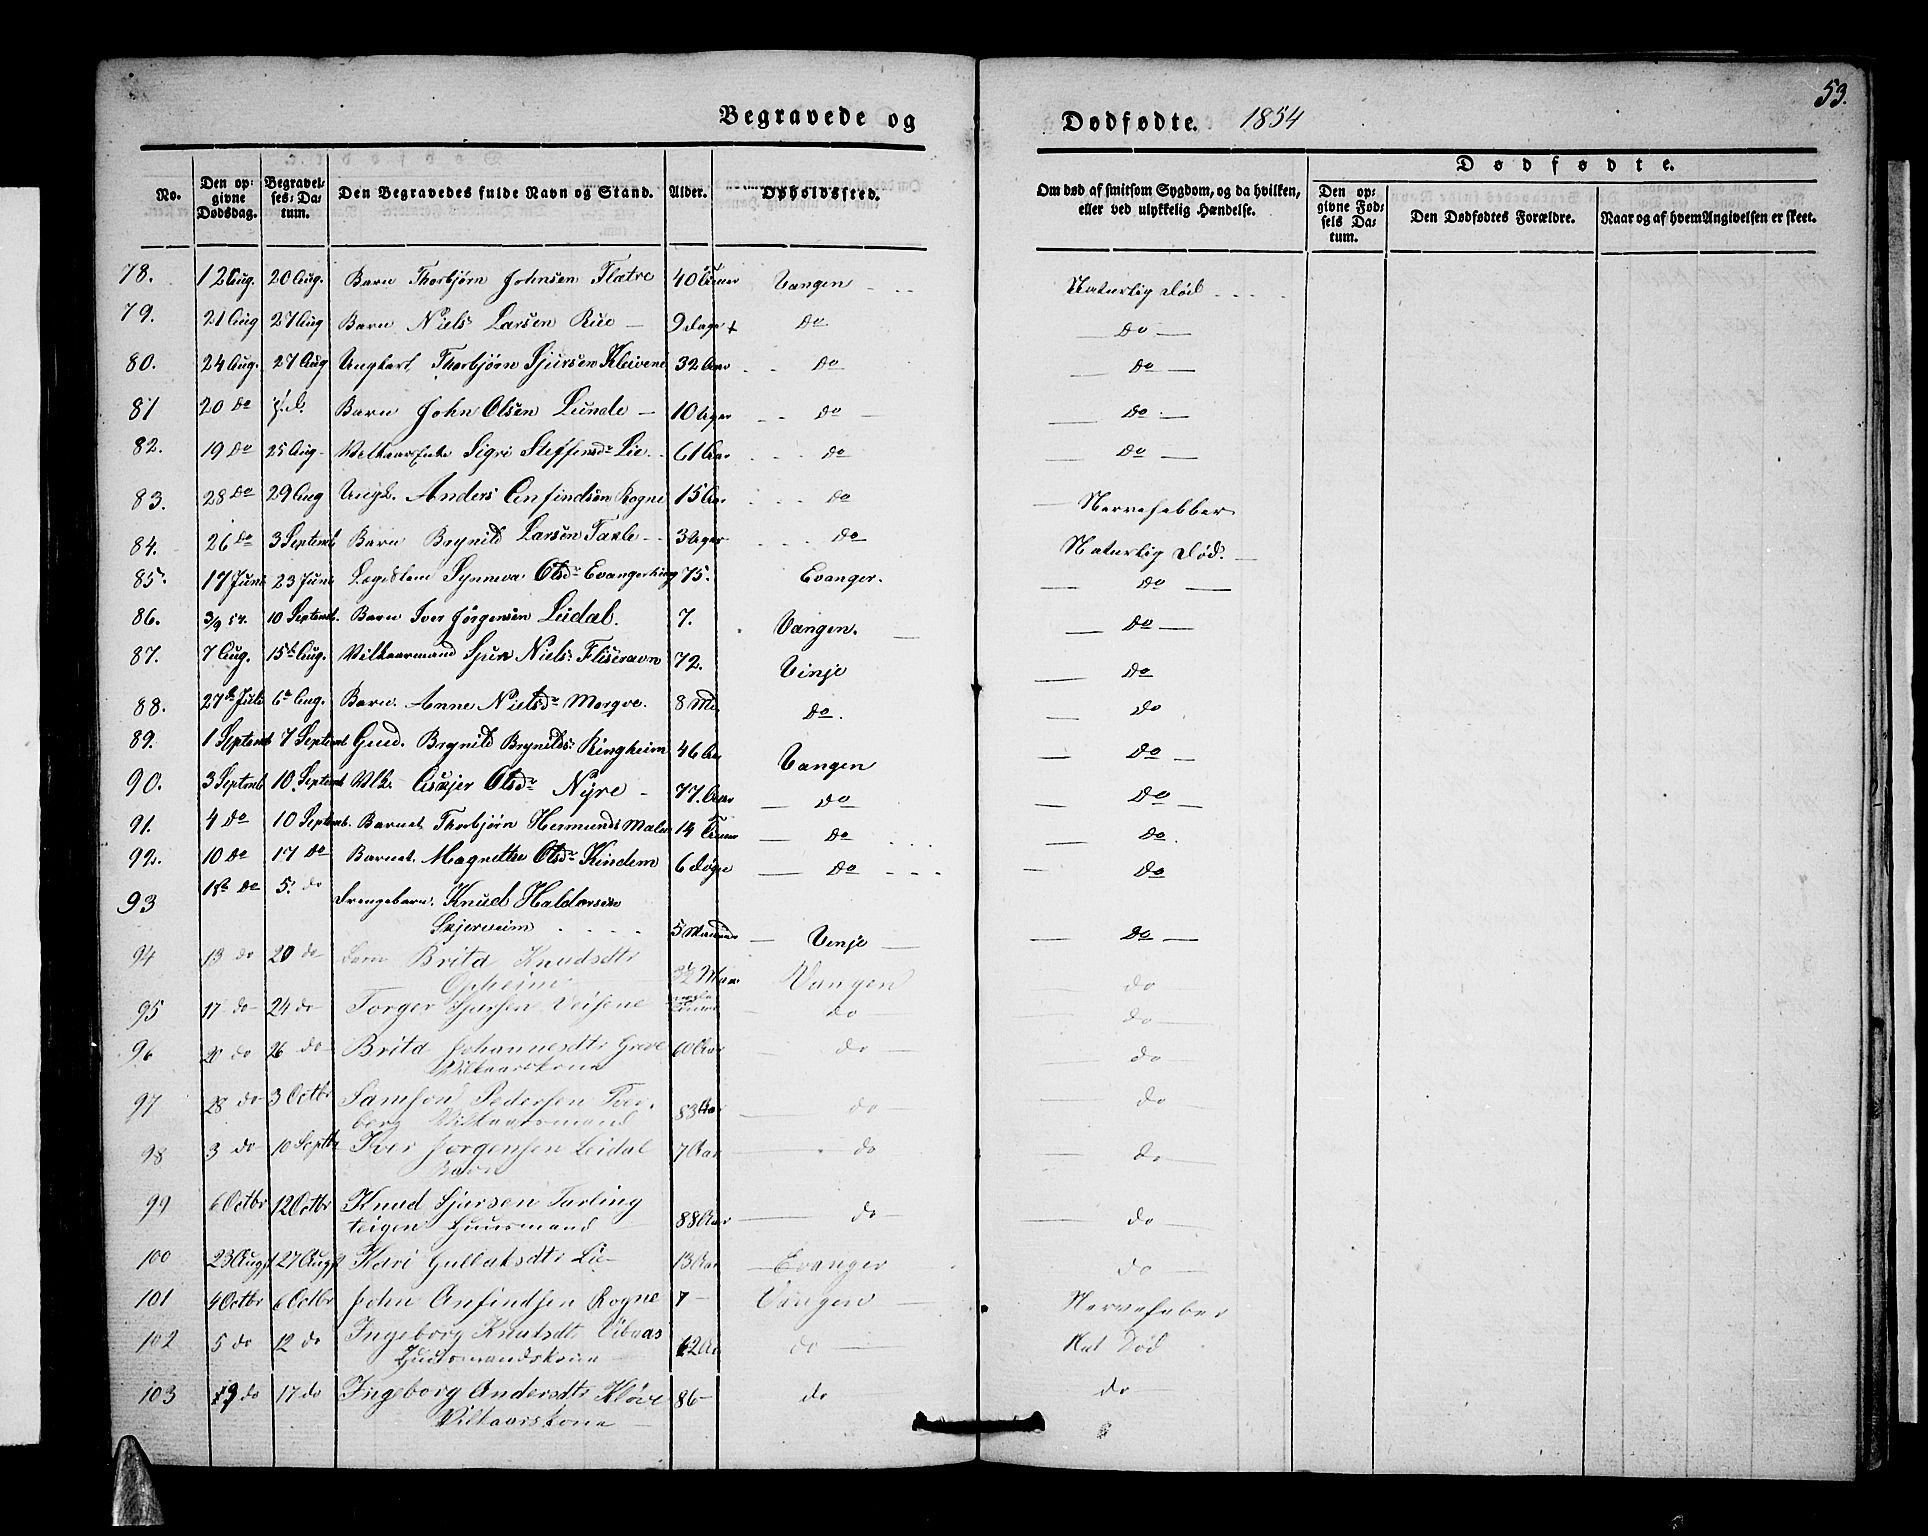 53.
Begravede og Dødfødte. 1854
Dødfødte.
No.
Den opgivne Dødsdag.
Begravelses-Datum.
Den Begravedes fulde Navn og Stand.
Alder.
Opholdssted.
Om død af smitsom Sygdom, og da hvilken, eller ved ulykkelig Hændelse.
Den opgivne Fødsels Datum.
Den Dødfødtes Forældre.
Naar og af hvem Angivelsen er skeet.
78. 12 Aug. 20 Aug. Barn Thorbjørn Johnsen Flatre 40 Vangen Naturlig Død
79. 21 Aug 27 Aug Barn Niels Larsen Rue 9 Dage Do Do
80. 24 Aug. 27 Aug Ungkarl Thorbjørn Sjursen Kleivene 32 Aar Do Do
81 20 Do Barn John Olsen Lunde 10 Do Do
82. 19 Do 25 Aug Sigri Steffensdr Lie 61 Aar Do Do
83. 28 Do 29 Aug Ungk. Anders Anfindsen Rogne 15 Aar Do Nervefebber
84. 26 Do 3 Septemb Barn Brynild Larsen 3 Do Naturlig Død.
85. 17 Juni 23 Juni Synneva Olsdr 75. Evanger. Do
86. 3/9 54. 10 Septemb. Barn Iver Jørgensen Lidal. 7. Vangen. Do
87. 7 Aug. 15de Aug. Vilkaarmand Sjur Niels: 72. Vinje Do
88. 27de Juli 6te Aug. Barn. Anne Nielsdr Morgve. 8 Md. Do. Do
89. 1 Septemb 7 Septemb Brynild Brynilds: Ringheim 46 Aar Vangen Do
90. 3 Septemb 10. Septemb Vilk. Olsdr Nyre 77. Aar Do Do
91. 4 Do 10 Septemb. Barnet Thorbjørn Hermunds 14 Do Do
92. 10 Do 17 Do Barnet Magnethe Olsdr Kindem 6 Døgn Do Do
93 18de Do 5. do Drengebarn. Knud Haldorsen
Skjerveim 5 Vinje Do
94 13 do 20 do Barn Brita Knudsdtr
Opheim 3½ Vangen do
95 17 do 24 do Torger Sjursen do do
96 20 do 26 do Brita Johannesdtr Greve
Vilkaarskone 60 Aar do do
97 28 do 3 Octbr Samson Pedersen Tver-
berg Vilkaarsmand 83 Aar do do
98 3 do 10 Septbr Iver Jørgensen Leidal
Barn 7 Aar do do
99 6 Octbr 12 Octbr Knud Sjursen Tarling
teigen Huusmand 88 Aar do do
100 23 Augst 27 Augst Kari Gullaksdtr Lie 13 Aar Evanger do
101 4 Octbr 6 Octbr John Anfindsen Rogne 7 Vangen Nervefeber
102 5 do 12 do Ingeborg Knutsdtr
Huusmandskone 62 Aar do Nat Død
103 do 17 do Ingeborg Andersdtr Kløve
Vilkaarskone 86 do do